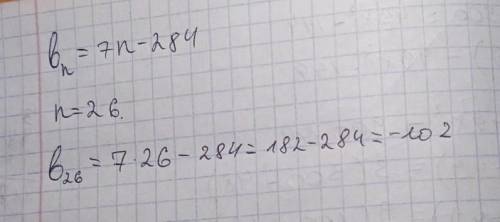 bₙ = 7n - 284
n = 26.
b₂₆ = 7 · 26 - 284 = 182 - 284 = -102